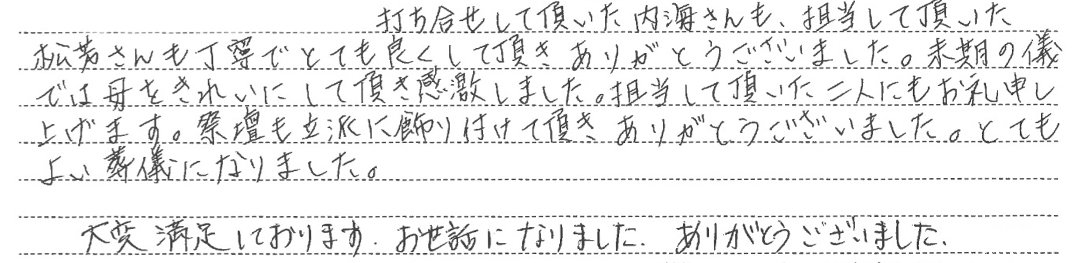 打ち合せして頂いた内海さんも、担当して頂いた
松芳さんも丁寧でとても良くして頂きありがとうございました。末期の儀
では母をきれいにして頂き感激しました。担当して頂いた二人にもお礼申し
上げます。祭壇も立派に飾り付けて頂きありがとうございました。とても
よい葬儀になりました。
大変満足しております。お世話になりました。ありがとうございました。